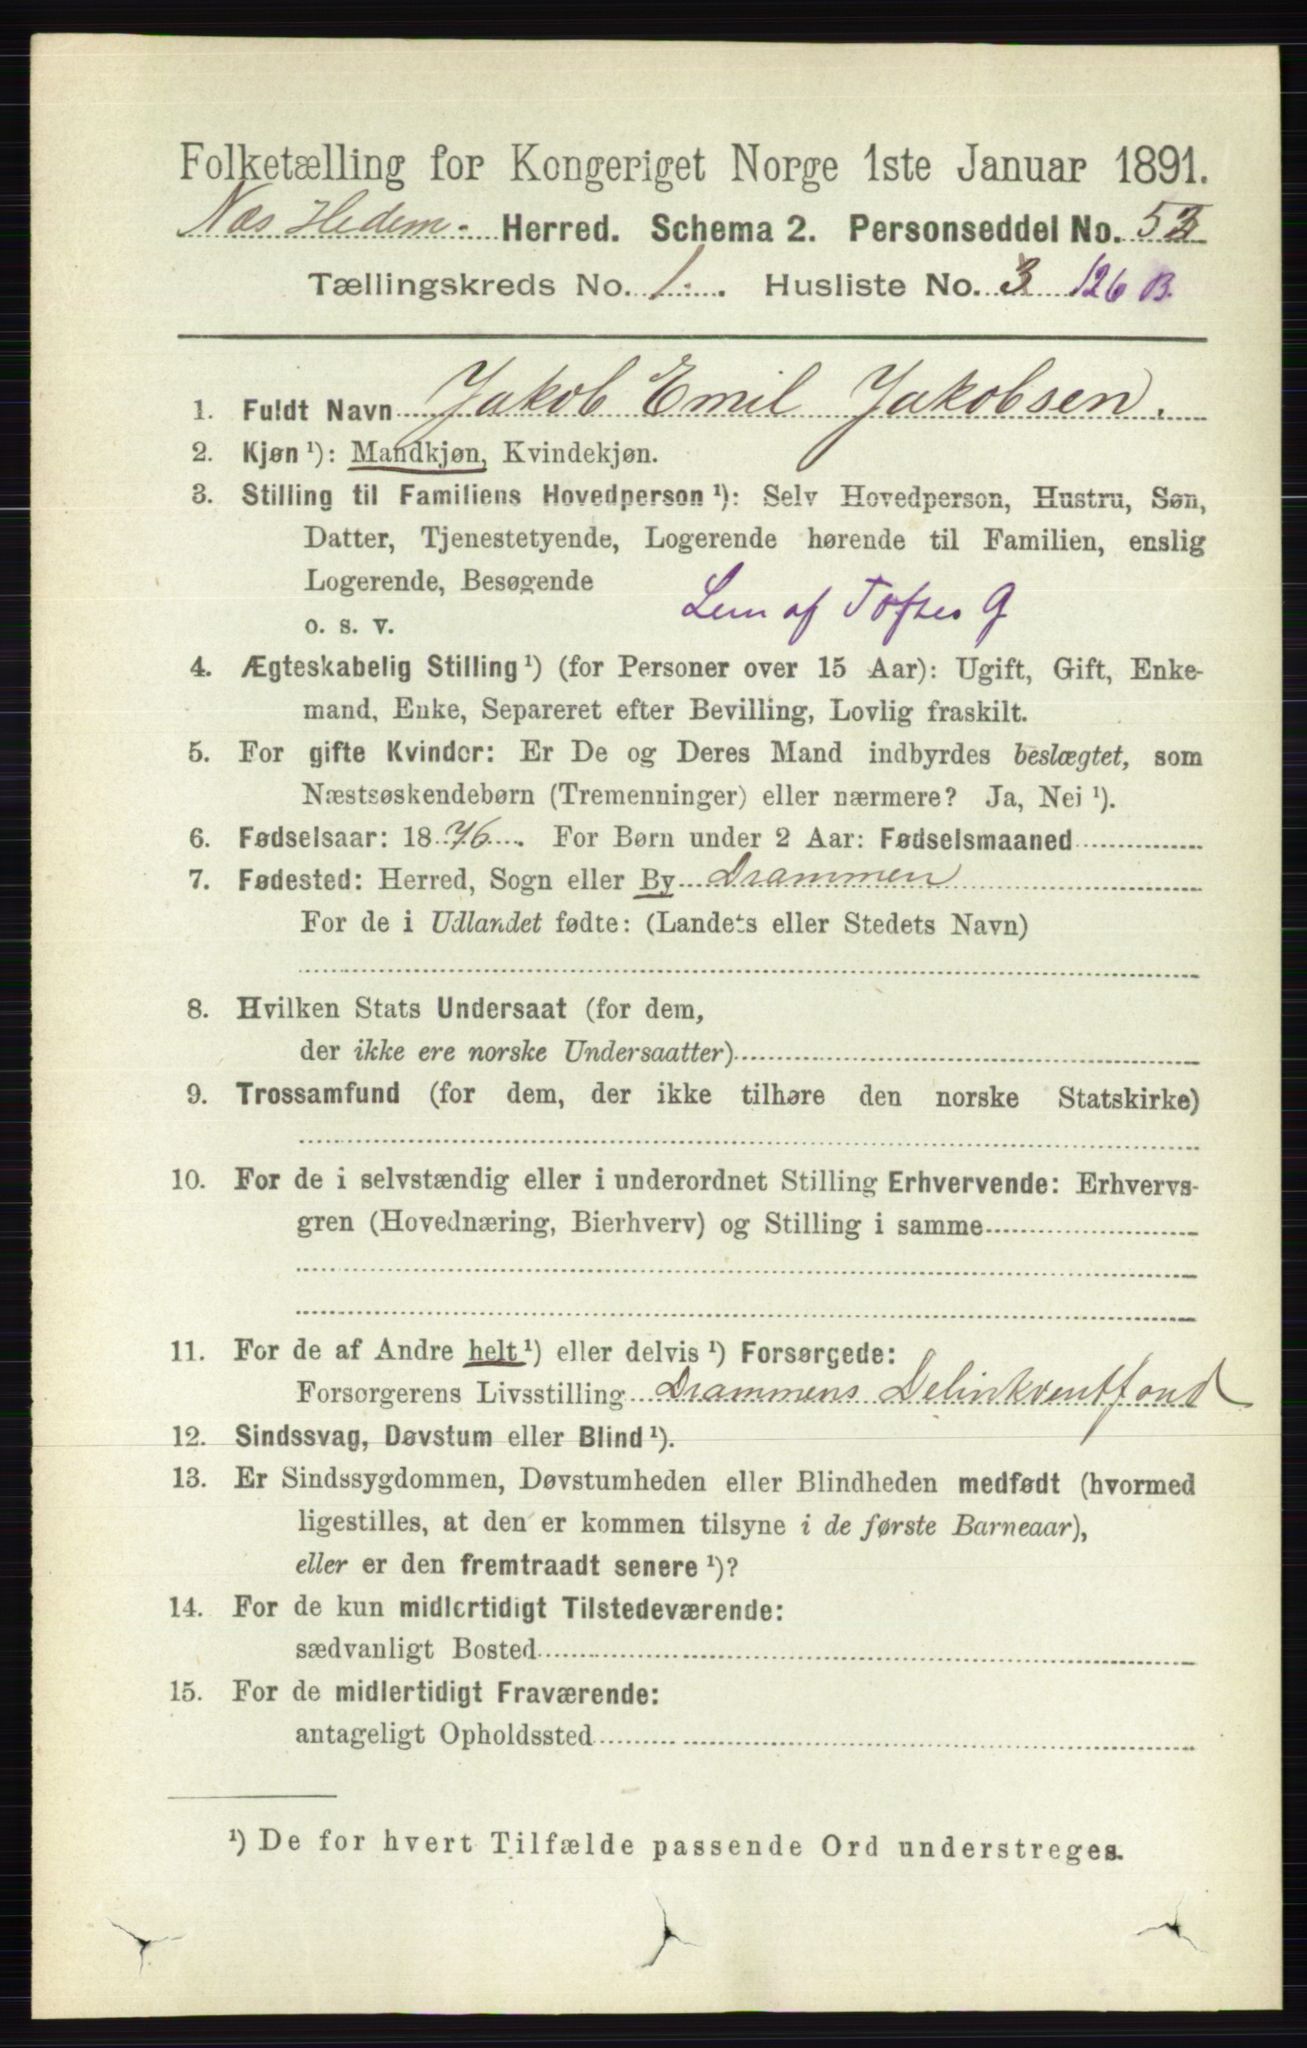 Folketælling for Kongeriget Norge 1ste Januar 1891.
Næs Hedem. Herred. Schema 2. Personseddel No. 53
Tællingskreds No. 1. Husliste No. 3 126 B.
1. Fuldt Navn Jakob Emil Jakobsen.
2. Kjøn ¹): Mandkjøn, Kvindekjøn.
3. Stilling til Familiens Hovedperson ¹): Selv Hovedperson, Hustru, Søn,
Datter, Tjenestetyende, Logerende hørende til Familien, enslig
Logerende, Besøgende
o. s. v. Lem af Toftes G
4. Ægteskabelig Stilling ¹) (for Personer over 15 Aar): Ugift, Gift, Enke-
mand, Enke, Separeret efter Bevilling, Lovlig fraskilt.
5. For gifte Kvinder: Er De og Deres Mand indbyrdes beslægtet, som
Næstsøskendebørn (Tremenninger) eller nærmere? Ja, Nei ¹).
6. Fødselsaar: 1876. For Børn under 2 Aar: Fødselsmaaned
7. Fødested: Herred, Sogn eller By Drammen
For de i Udlandet fødte: (Landets eller Stedets Navn)
8. Hvilken Stats Undersaat (for dem,
der ikke ere norske Undersaatter)
9. Trossamfund (for dem, der ikke tilhøre den norske Statskirke)
10. For de i selvstændig eller i underordnet Stilling Erhvervende: Erhvervs-
gren (Hovednæring, Bierhverv) og Stilling i samme
11. For de af Andre helt ¹) eller delvis ¹) Forsørgede:
Forsørgerens Livsstilling Drammens Delinkventfond
12. Sindssvag, Døvstum eller Blind ¹).
13. Er Sindssygdommen, Døvstumheden eller Blindheden medfødt (hvormed
ligestilles, at den er kommen tilsyne i de første Barneaar),
eller er den fremtraadt senere ¹)?
14. For de kun midlertidigt Tilstedeværende:
sædvanligt Bosted
15. For de midlertidigt Fraværende:
antageligt Opholdssted
¹) De for hvert Tilfælde passende Ord understreges.